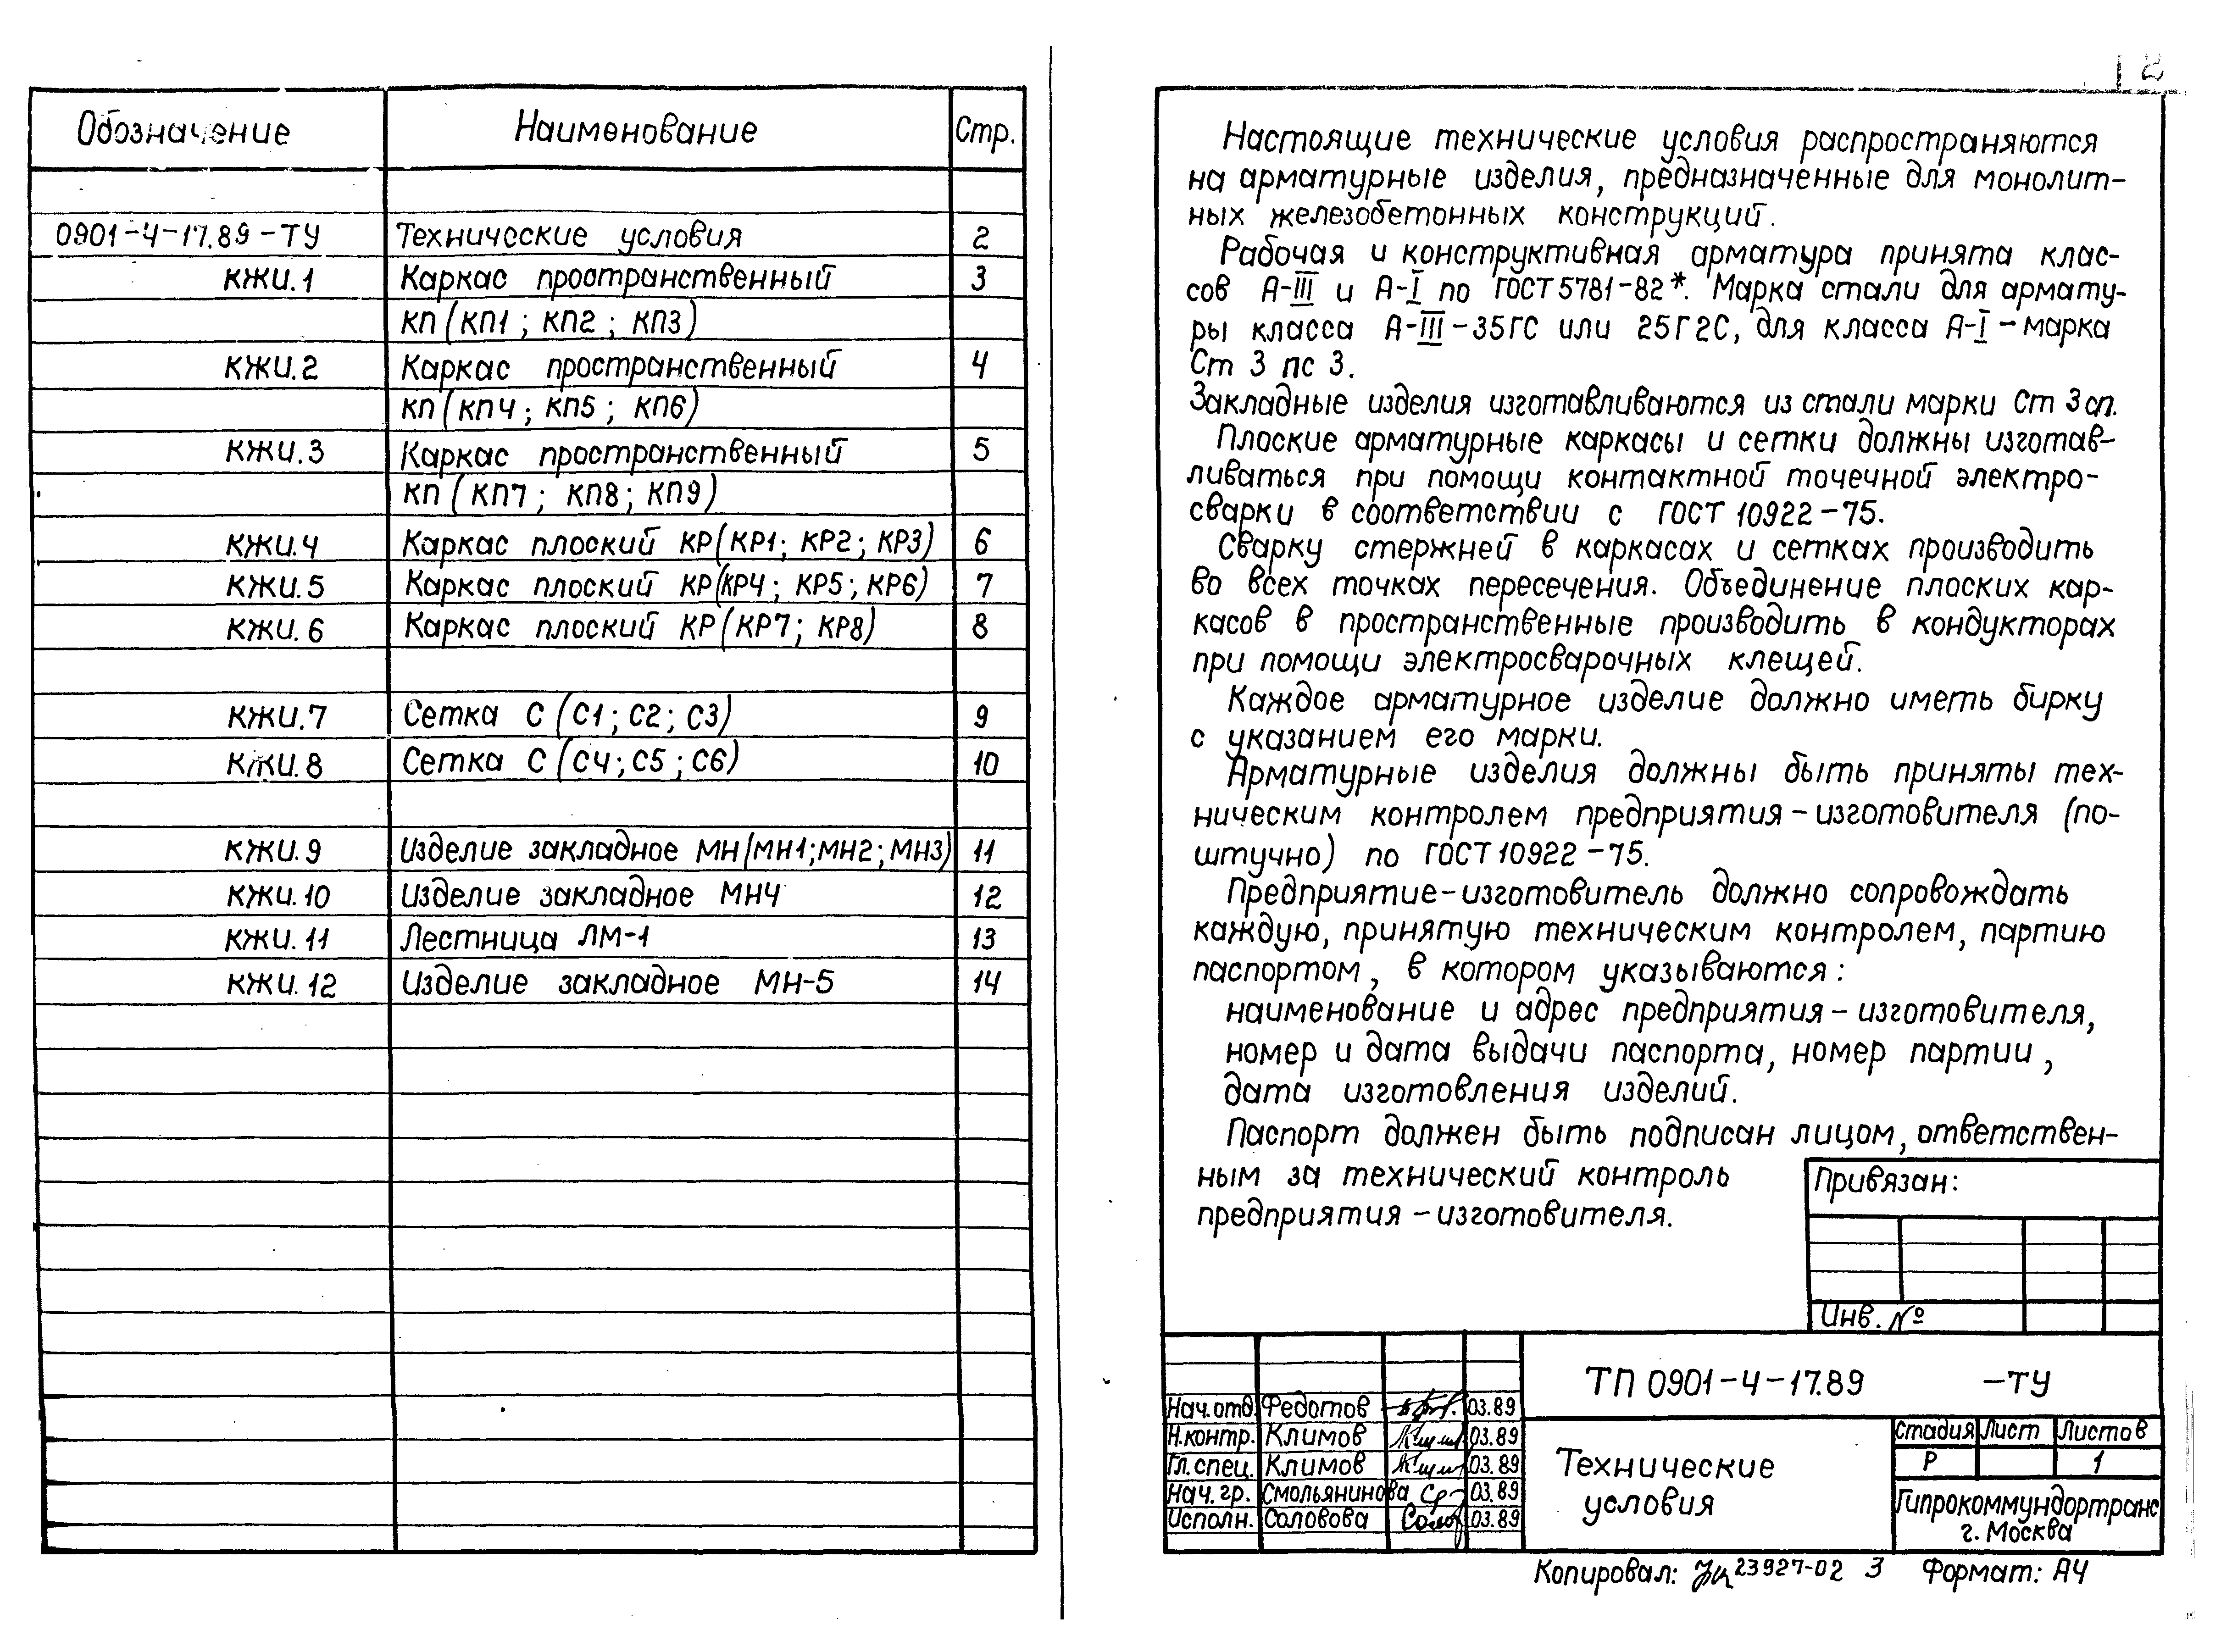 Обозначение Наименование Стр.
0901-4-17.89-ТУ Технические условия 2
КЖИ.1 Каркас пространственный 3
КП (КП1; КП2; КП3)
КЖИ.2 Каркас пространственный 4
КП (КП4; КП5; КП6)
КЖИ.3 Каркас пространственный 5
КП (КП7; КП8; КП9)
КЖИ.4 Каркас плоский КР(КР1; КР2; КР3) 6
КЖИ.5 Каркас плоский КР(КР4; КР5; КР6) 7
КЖИ.6 Каркас плоский КР(КР7; КР8) 8
КЖИ.7 Сетка С (С1; С2; С3) 9
КЖИ.8 Сетка С (С4; С5; С6) 10
КЖИ.9 Изделие закладное МН(МН1;МН2;МН3) 11
КЖИ.10 Изделие закладное МН4 12
КЖИ.11 Лестница ЛМ-1 13
КЖИ.12 Изделие закладное МН-5 14
2
Настоящие технические условия распространяются
на арматурные изделия, предназначенные для монолит-
ных железобетонных конструкций.
Рабочая и конструктивная арматура принята клас-
сов А-III и А-I по ГОСТ 5781-82*. Марка стали для армату-
ры класса А-III-35ГС или 25Г2С, для класса А-I - марка
Ст 3 пс 3.
Закладные изделия изготавливаются из стали марки Ст 3 сп.
Плоские арматурные каркасы и сетки должны изготав-
ливаться при помощи контактной точечной электро-
сварки в соответствии с ГОСТ 10922-75.
Сварку стержней в каркасах и сетках производить
во всех точках пересечения. Объединение плоских кар-
касов в пространственные производить в кондукторах
при помощи электросварочных клещей.
Каждое арматурное изделие должно иметь бирку
с указанием его марки.
Арматурные изделия должны быть приняты тех-
ническим контролем предприятия-изготовителя (по-
штучно) по ГОСТ 10922-75.
Предприятие-изготовитель должно сопровождать
каждую, принятую техническим контролем, партию
паспортом, в котором указываются:
наименование и адрес предприятия-изготовителя,
номер и дата выдачи паспорта, номер партии,
дата изготовления изделий.
Паспорт должен быть подписан лицом, ответствен-
ным за технический контроль
предприятия-изготовителя.
Привязан:
Инв. №
ТП 0901-4-17.89 -ТУ
Нач.отд. Федотов 03.89
Н.контр. Климов 03.89
Гл.спец. Климов 03.89
Нач.гр. Смольянинова 03.89
Исполн. Соловова 03.89
Технические
условия
Стадия Лист Листов
Р 1
Гипрокоммундортранс
г. Москва
Копировал: 23927-02 3 Формат: А4